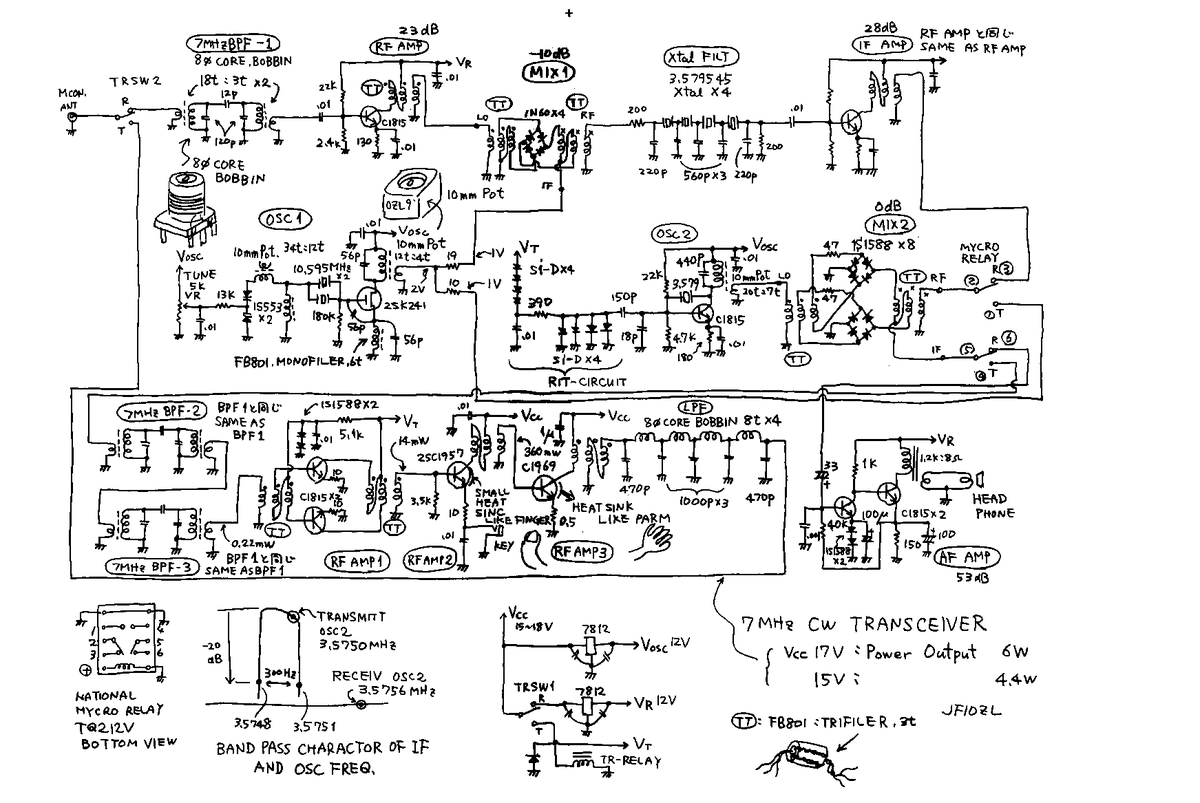 7MHz BPF-1
8ø CORE, BOBBIN
18t : 3t ×2
12p
120p
8ø CORE
BOBBIN
M CON.
ANT
TRSW2
R
T
23dB
RF AMP
VR
.01
22K
TT
.01
C1815
2.4K
130
.01
-10dB
MIX1
LO
TT
1N60×4
TT
RF
IF
Xtal FILT
3.579545
Xtal ×4
200
220p
560p×3
220p
200
.01
28dB
IF AMP
RF AMP と同じ
SAME AS RF AMP
OSC1
10mm Pot. 34t:12t
VOSC
TUNE
5K
VR
.01
13K
1S553
×2
10.595MHz
×2
180K
56p
FB801, MONOFILER, 6t
56p
2SK241
56p
.01
VOSC
10mm Pot
12t:4t
OZL9
10mm Pot
2V
19
10
1V
1V
VT
Si-D×4
390
.01
Si-D×4
150p
18p
RIT-CIRCUIT
OSC2
440p
22K
3.579
4.7K
180
.01
C1815
VOSC
.01
10mm Pot
30t:7t
0dB
MIX2
47
1S1588 ×8
47
LO
TT
TT
RF
IF
MYCRO
RELAY
R ③
②
T
①
R ⑥
⑤
T
④
7MHz BPF-2
BPF1と同じ
SAME AS
BPF1
7MHz BPF-3
0.22mW
BPF1と同じ
SAME AS BPF1
1S1588×2
.01
5.1K
VT
C1815×2
10
TT
TT
RF AMP1
14mW
3.5K
2SC1957
.01
10
.01
VCC
SMALL
HEAT
SINC
LIKE FINGER
KEY
RF AMP2
360mW
C1969
1μ
VCC
0.5
HEAT SINK
LIKE PARM
RF AMP3
LPF
8ø CORE BOBBIN 8t×4
470p
1000p×3
470p
33
1K
VR
1.2K:8Ω
HEAD
PHONE
C1815×2
100μ
40K
1S1588
×2
150
100
AF AMP
53dB
1
2
3
4
5
6
NATIONAL
MYCRO RELAY
TQ212V
BOTTOM VIEW
-20
dB
300Hz
3.5748
3.5751
TRANSMITT
OSC2
3.5750MHz
RECEIV OSC2
3.5756MHz
BAND PASS CHARACTOR OF IF
AND OSC FREQ.
VCC
15~18V
7812
VOSC 12V
TRSW1
R
T
7812
VR 12V
VT
TR-RELAY
7MHz CW TRANSCEIVER
VCC 17V : Power Output 6W
15V : 4.4W
JF1OZL
TT : FB801 : TRIFILER, 3t